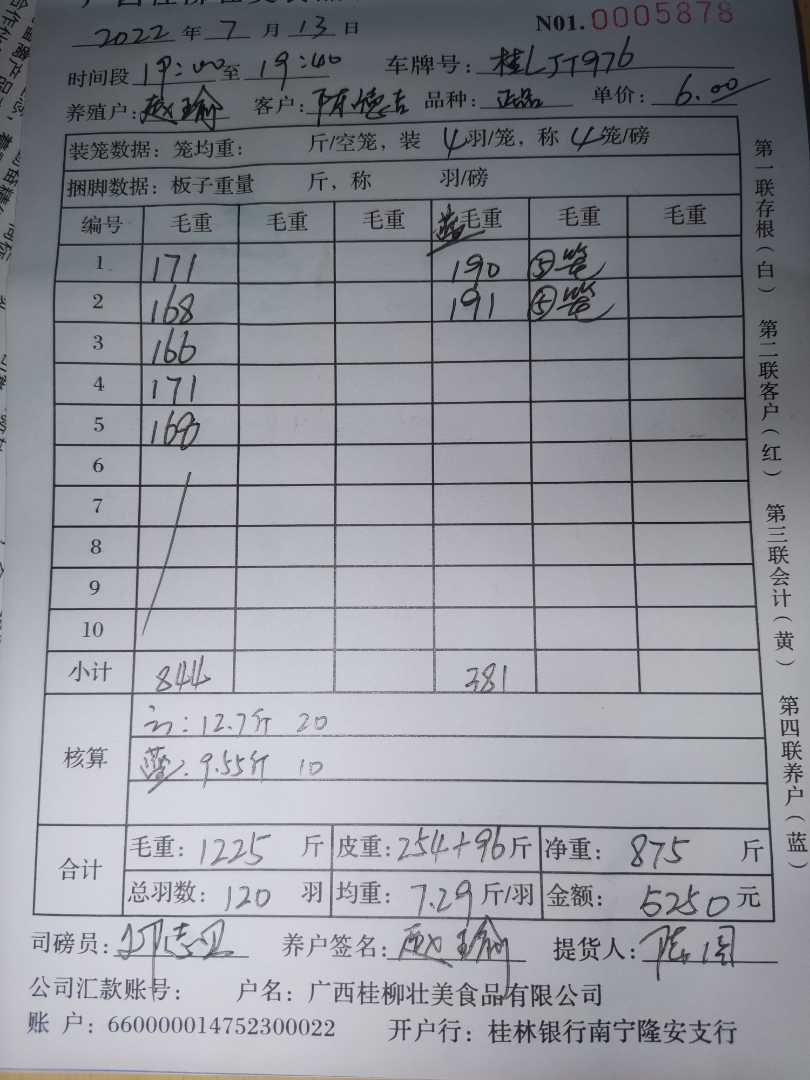 2022 年 7 月 13 日 N01. 0005878
时间段 19:00 至 19:40 车牌号: 桂LJT976
养殖户: 赵瑜 客户: 陈德吉 品种: 正品 单价: 6.00
装笼数据: 笼均重: 斤/空笼, 装 4 羽/笼, 称 4 笼/磅
捆脚数据: 板子重量 斤, 称 羽/磅
编号 毛重 毛重 毛重 蓝 毛重 毛重 毛重
1 171 190 ⑤笼
2 168 191 ⑤笼
3 166
4 171
5 168
6
7
8
9
10
小计 844 381
核算
: 12.7斤 20
蓝: 9.55斤 10
合计 毛重: 1225 斤 皮重: 254+96 斤 净重: 875 斤
总羽数: 120 羽 均重: 7.29 斤/羽 金额: 5250 元
司磅员: 养户签名: 赵瑜 提货人:
公司汇款账号: 户名: 广西桂柳壮美食品有限公司
账 户: 660000014752300022 开户行: 桂林银行南宁隆安支行
第一联存根(白) 第二联客户(红) 第三联会计(黄) 第四联养户(蓝)